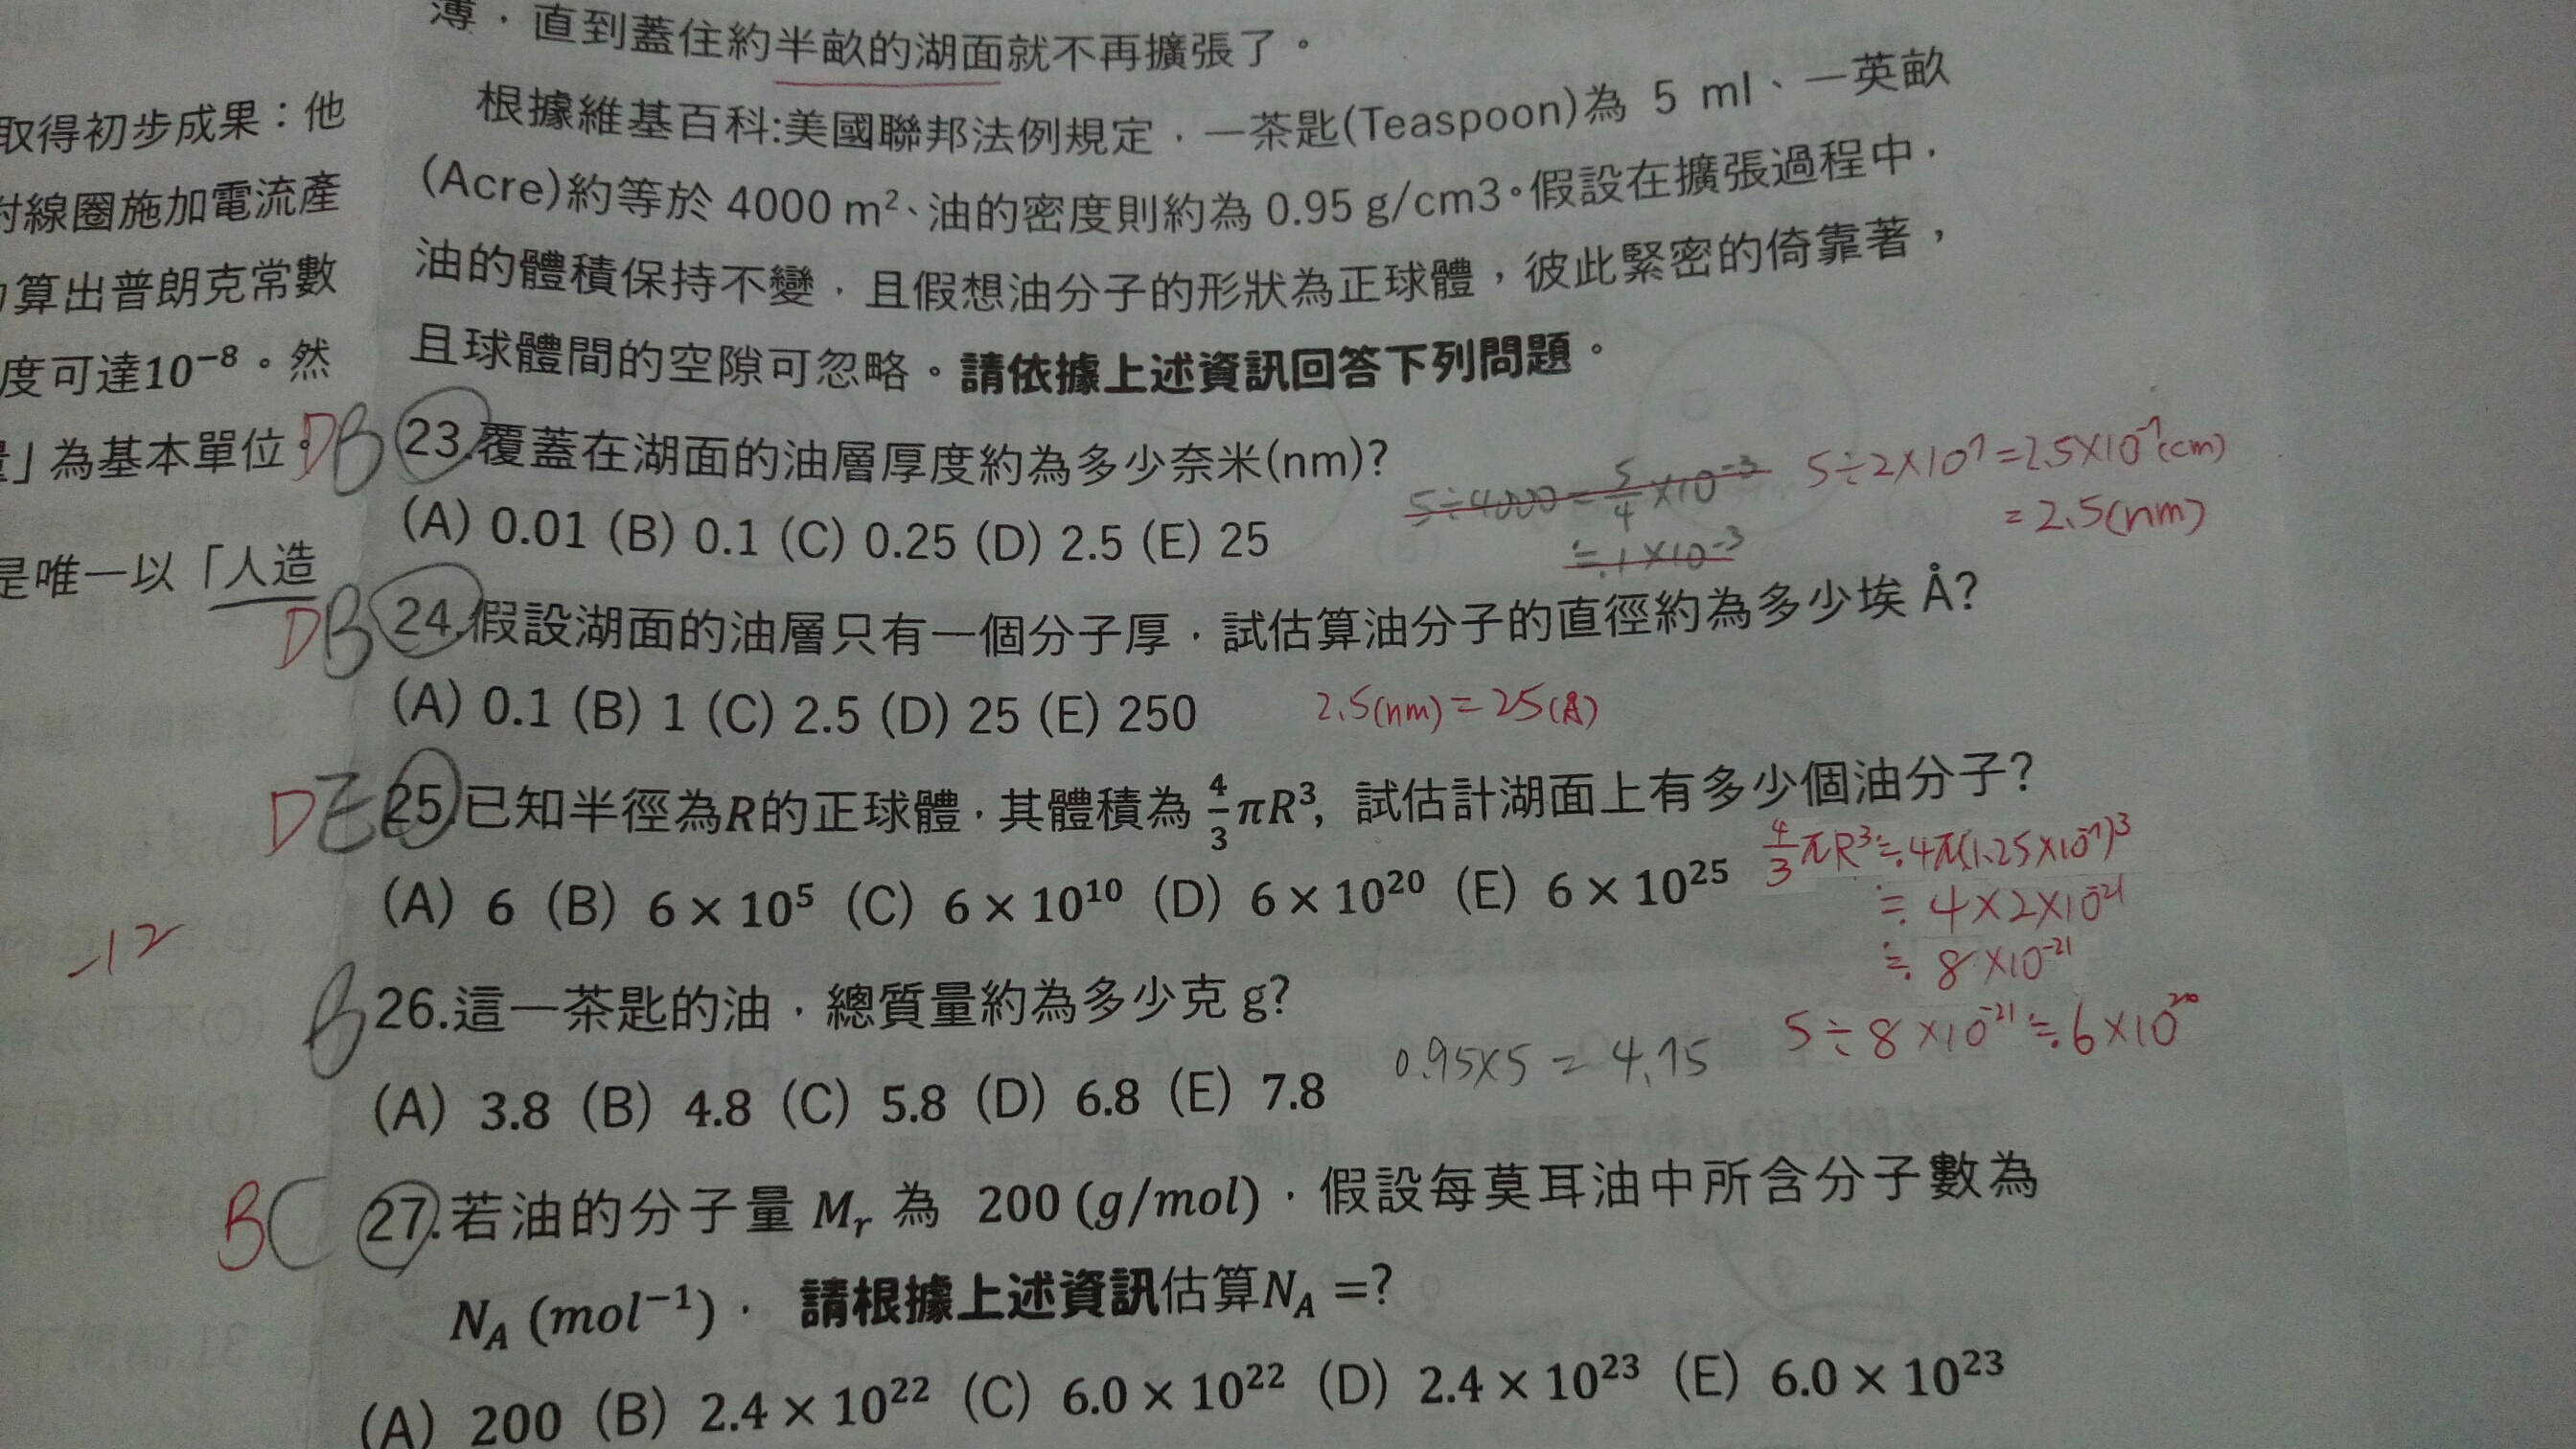 薄，直到蓋住約半畝的湖面就不再擴張了。
根據維基百科:美國聯邦法例規定，一茶匙(Teaspoon)為 5 ml、一英畝
(Acre)約等於 4000 m²、油的密度則約為 0.95 g/cm3。假設在擴張過程中，
油的體積保持不變，且假想油分子的形狀為正球體，彼此緊密的倚靠著，
且球體間的空隙可忽略。請依據上述資訊回答下列問題。
取得初步成果：他
對線圈施加電流產
算出普朗克常數
度可達10⁻⁸。然
」為基本單位。
是唯一以「人造
DB 23.覆蓋在湖面的油層厚度約為多少奈米(nm)?
(A) 0.01 (B) 0.1 (C) 0.25 (D) 2.5 (E) 25
5÷4000=5/4×10⁻³
≒.1×10⁻³
5÷2×10⁷=2.5×10⁻⁷(cm)
=2.5(nm)
DB 24.假設湖面的油層只有一個分子厚，試估算油分子的直徑約為多少埃 Å?
(A) 0.1 (B) 1 (C) 2.5 (D) 25 (E) 250
2.5(nm)=25(Å)
DE 25.已知半徑為R的正球體，其體積為 4/3 πR³, 試估計湖面上有多少個油分子?
(A) 6 (B) 6 × 10⁵ (C) 6 × 10¹⁰ (D) 6 × 10²⁰ (E) 6 × 10²⁵
4/3 πR³≒.4π(1.25×10⁻⁷)³
≒. 4×2×10⁻²¹
≒. 8×10⁻²¹
5÷8×10⁻²¹≒.6×10²⁰
-12
B 26.這一茶匙的油，總質量約為多少克 g?
(A) 3.8 (B) 4.8 (C) 5.8 (D) 6.8 (E) 7.8
0.95×5=4.75
BC 27.若油的分子量 Mᵣ 為 200 (g/mol)，假設每莫耳油中所含分子數為
N_A (mol⁻¹)， 請根據上述資訊估算N_A =?
(A) 200 (B) 2.4 × 10²² (C) 6.0 × 10²² (D) 2.4 × 10²³ (E) 6.0 × 10²³